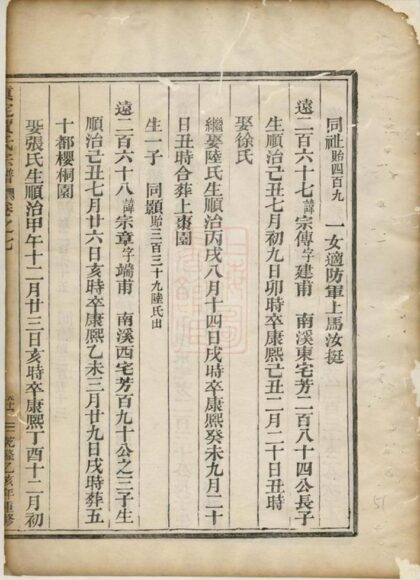 同祉貽四百九　一女適防軍上馬汝挺
遠二百六十七諱宗傳字建甫　南溪東宅芳二百八十四公長子
生順治己丑七月初九日卯時卒康熙己丑二月二十日丑時
娶徐氏
繼娶陸氏生順治丙戌八月十四日戌時卒康熙癸未九月二十
日丑時合葬上棗園
生一子　同顯貽三百三十九陸氏出
遠二百六十八諱宗章字端甫　南溪西宅芳百九十公之三子生
順治己丑七月廿六日亥時卒康熙乙未三月廿九日戌時葬五
十都櫻桐園
娶張氏生順治甲午十二月廿三日亥時卒康熙丁酉十二月初
氏宗譜　卷之七　乾隆乙亥年重修